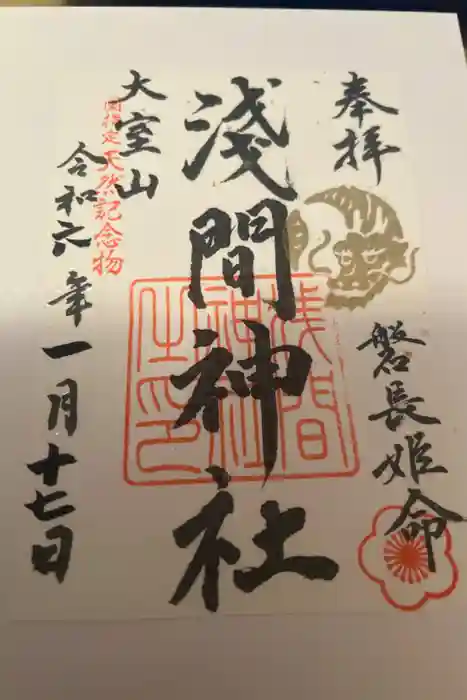 奉拝
磐長姫命
淺間神社
淺間
神社
之印
大室山
国指定天然記念物
令和六年一月十七日